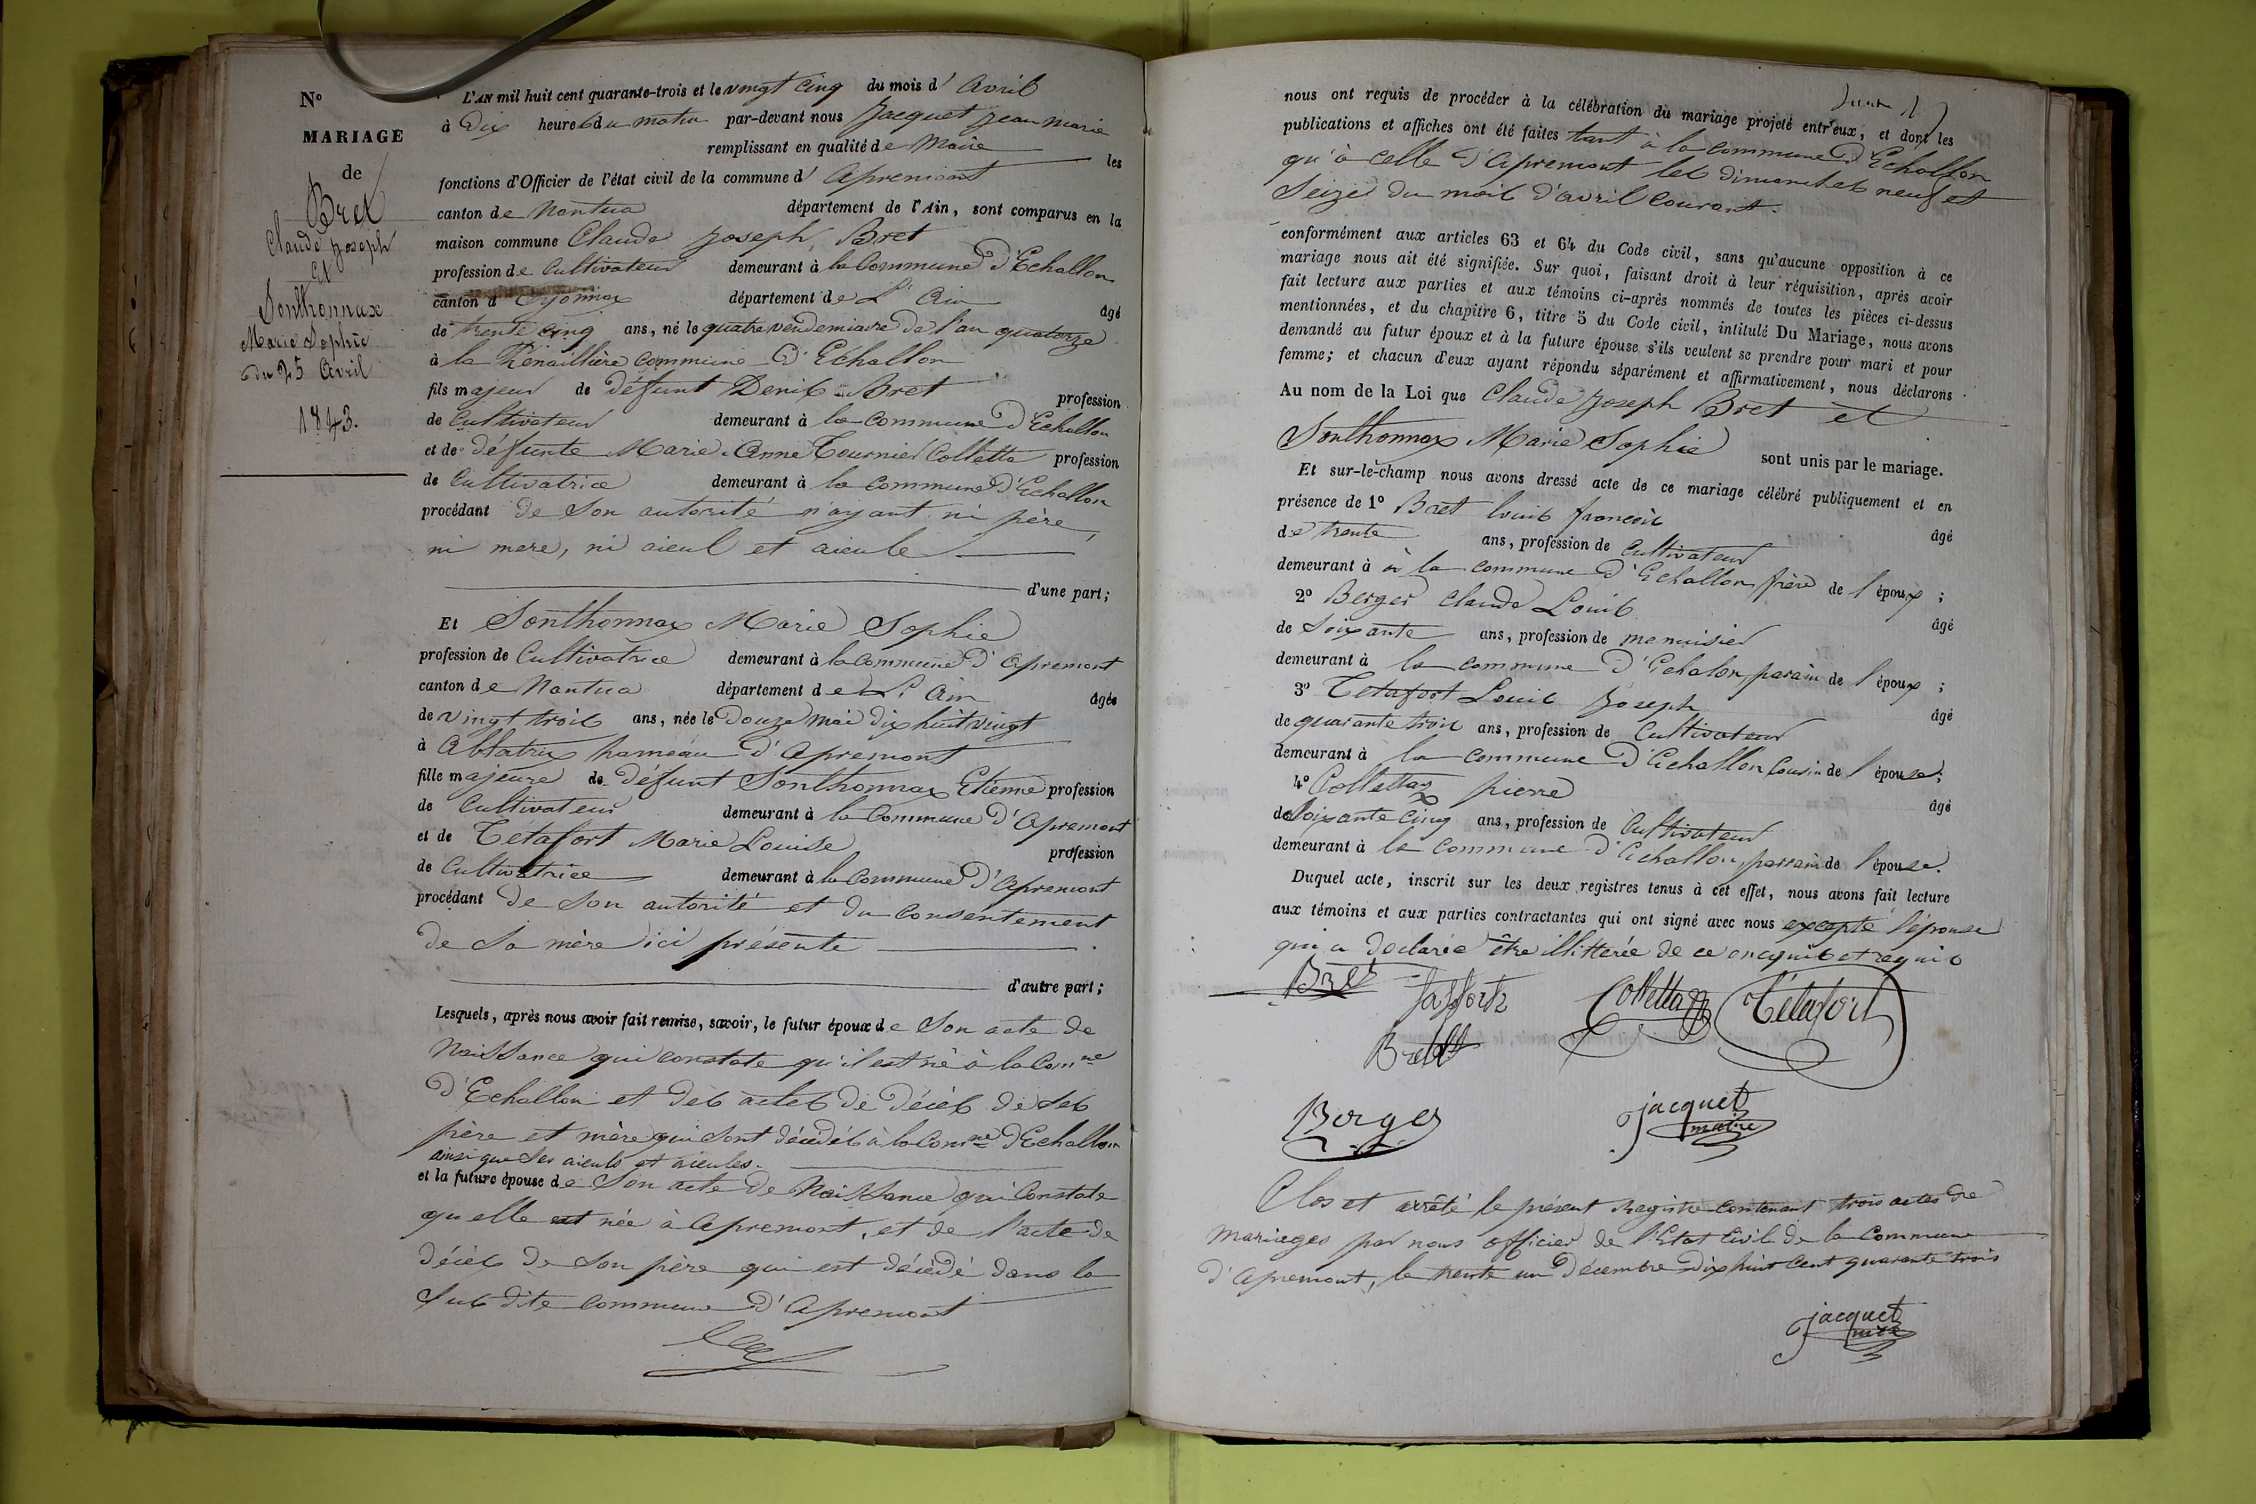 N°
MARIAGE
de
Bret
Claude Joseph
Et
Sonthonnax
Marie Sophie
du 25 Avril
1843.
L'AN mil huit cent quarante-trois et le vingt cinq du mois d' Avril
à Dix heures du matin par-devant nous Jacquet Jean Marie
remplissant en qualité de Maire les
fonctions d'Officier de l'état civil de la commune d' Apremont
canton de Nantua département de l'Ain, sont comparus en la
maison commune Claude Joseph Bret
profession de Cultivateur demeurant à la Commune D'Echallon
canton d' Oyonnax département de L'Ain âgé
de trente cinq ans, né le quatre vendemiaire de l'an quatorze
à la Renaillière commune D'Echallon
fils majeur de défunt Denis Bret profession
de Cultivateur demeurant à la commune D'Echallon
et de défunte Marie Anne Tournier Colletta profession
de Cultivatrice demeurant à la commune D'Echallon
procédant de Son autorité n'ayant ni père,
ni mere, ni aieul et aieule
d'une part;
Et Sonthonnax Marie Sophie
profession de Cultivatrice demeurant à la Commune D'Apremont
canton de Nantua département de L'Ain âgée
de vingt trois ans, née le Douze mai dix huit vingt
à Ablatrix hameau D'Apremont
fille majeure de défunt Sonthonnax Etienne profession
de Cultivateur demeurant à la Commune D'Apremont
et de Tétafort Marie Louise profession
de Cultivatrice demeurant à la Commune D'Apremont
procédant de Son autorité et du Consentement
de Sa mère ici présente
d'autre part;
Lesquels, après nous avoir fait remise, savoir, le futur époux de Son acte de
Naissance qui constate qu'il est né à la Comne
D'Echallon et des actes de décès de ses
père et mère qui sont décédés à la Comne D'Echallon
ainsi que ses aieuls et aieules.
et la future épouse de Son acte de Naissance qui Constate
qu'elle est née à Apremont, et de l'acte de
décès de Son père qui est décédé dans la
Sus dite commune D'Apremont
nous ont requis de procéder à la célébration du mariage projeté entr'eux, et dont les
publications et affiches ont été faites tant à la commune D'Echallon
qu'à celle D'Apremont les dimanches neuf et
Seize du mois d'avril Courant.
conformément aux articles 63 et 64 du Code civil, sans qu'aucune opposition à ce
mariage nous ait été signifiée. Sur quoi, faisant droit à leur réquisition, après avoir
fait lecture aux parties et aux témoins ci-après nommés de toutes les pièces ci-dessus
mentionnées, et du chapitre 6, titre 5 du Code civil, intitulé Du Mariage, nous avons
demandé au futur époux et à la future épouse s'ils veulent se prendre pour mari et pour
femme; et chacun d'eux ayant répondu séparément et affirmativement, nous déclarons
Au nom de la Loi que Claude Joseph Bret et
Sonthonnax Marie Sophie sont unis par le mariage.
Et sur-le-champ nous avons dressé acte de ce mariage célébré publiquement et en
présence de 1° Bret louis françois âgé
de trente ans, profession de Cultivateur
demeurant à à la commune D'Echallon frère de l'époux;
2° Berger Claude Louis âgé
de Soixante ans, profession de menuisier
demeurant à la commune D'Echalon parain de l'époux;
3° Tetafort Louis Joseph âgé
de quarante trois ans, profession de Cultivateur
demeurant à la commune D'Echallon Cousin de l'épouse;
4° Collettaz pierre âgé
de Soixante Cinq ans, profession de Cultivateur
demeurant à la Commune D'Echallon parrain de l'épouse.
Duquel acte, inscrit sur les deux registres tenus à cet effet, nous avons fait lecture
aux témoins et aux parties contractantes qui ont signé avec nous excepté l'épouse
qui a declarée être illitterée de ce enquis et requis
Bret
Collettaz Tétafort
Bret
Berger
jacquet
maire
Clos et arrêté le présent Registre Contenant trois actes de
Mariages par nous officier de l'Etat Civil de la Commune
d'Apremont, le trente un Décembre Dix huit Cent quarante trois
jacquet